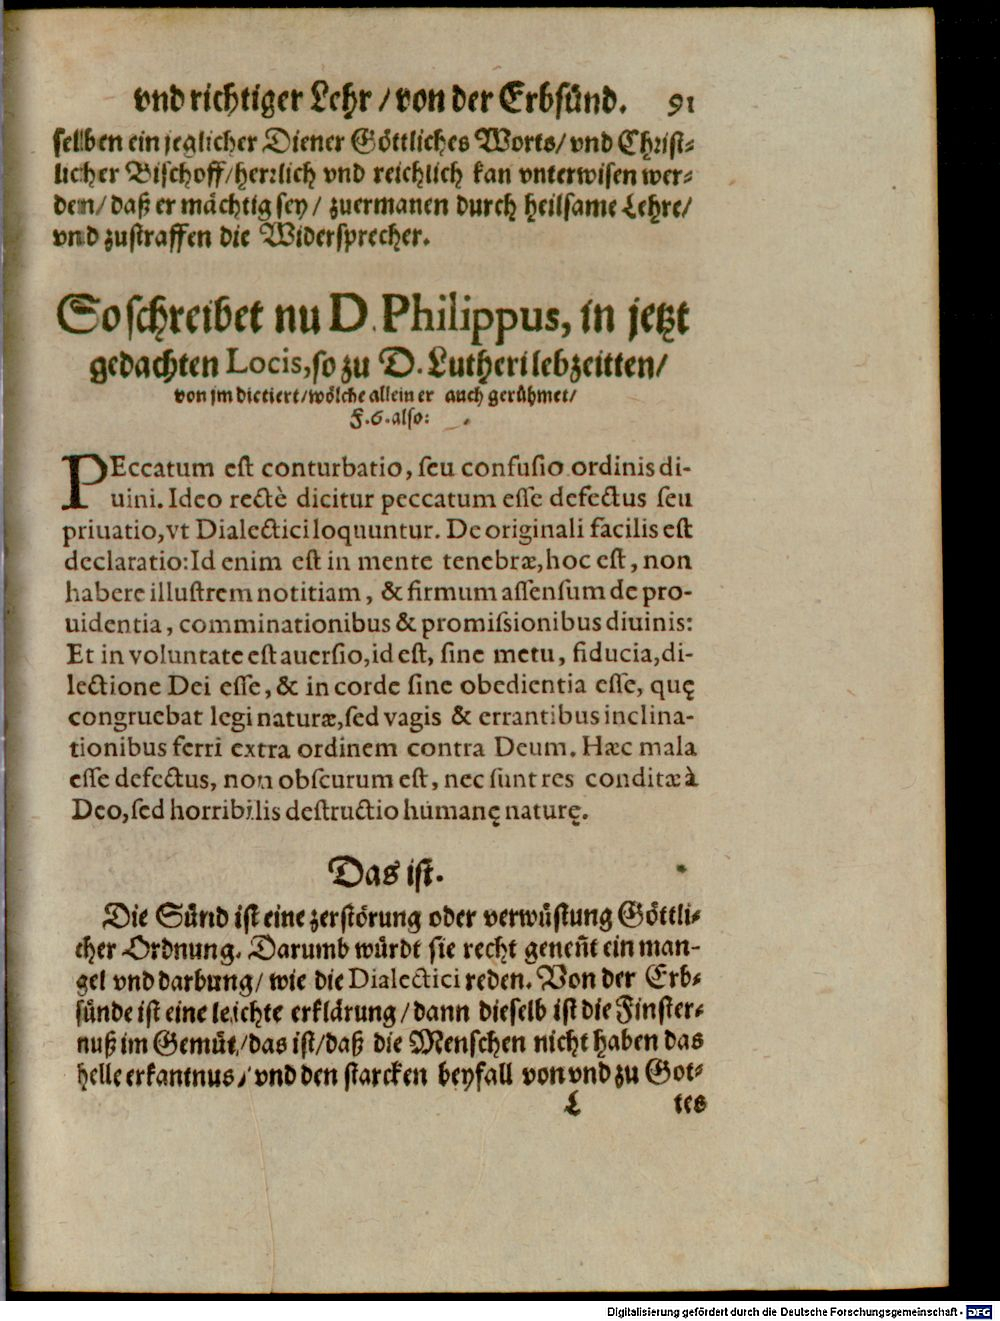 vnd richtiger Lehr / von der Erbsünd. 91
selben ein jeglicher Diener Göttliches Worts/ vnd Christ-
licher Bischoff/ herrlich vnd reichlich kan vnterwisen wer-
den/ daß er mächtig sey/ zuermanen durch heilsame Lehre/
vnd zustraffen die Widersprecher.
So schreibet nu D. Philippus, in jetzt
gedachten Locis, so zu D. Lutheri lebzeitten/
von jm dictiert/ wölche allein er auch gerühmet/
F. G. also:
PEccatum est conturbatio, seu confusio ordinis di-
uini. Ideo rectè dicitur peccatum esse defectus seu
priuatio, vt Dialectici loquuntur. De originali facilis est
declaratio: Id enim est in mente tenebræ, hoc est, non
habere illustrem notitiam, & firmum assensum de pro-
uidentia, comminationibus & promissionibus diuinis:
Et in voluntate est auersio, id est, sine metu, fiducia, di-
lectione Dei esse, & in corde sine obedientia esse, quę
congruebat legi naturæ, sed vagis & errantibus inclina-
tionibus ferri extra ordinem contra Deum. Hæc mala
esse defectus, non obscurum est, nec sunt res conditæ à
Deo, sed horribilis destructio humanę naturę.
Das ist.
Die Sünd ist eine zerstörung oder verwüstung Göttli-
cher Ordnung. Darumb würdt sie recht geneñt ein man-
gel vnd darbung/ wie die Dialectici reden. Von der Erb-
sünde ist eine leichte erklärung/ dann dieselb ist die Finster-
nuß im Gemüt/ das ist/ daß die Menschen nicht haben das
helle erkantnus/ vnd den starcken beyfall von vnd zu Got-
L tes
Digitalisierung gefördert durch die Deutsche Forschungsgemeinschaft - DFG